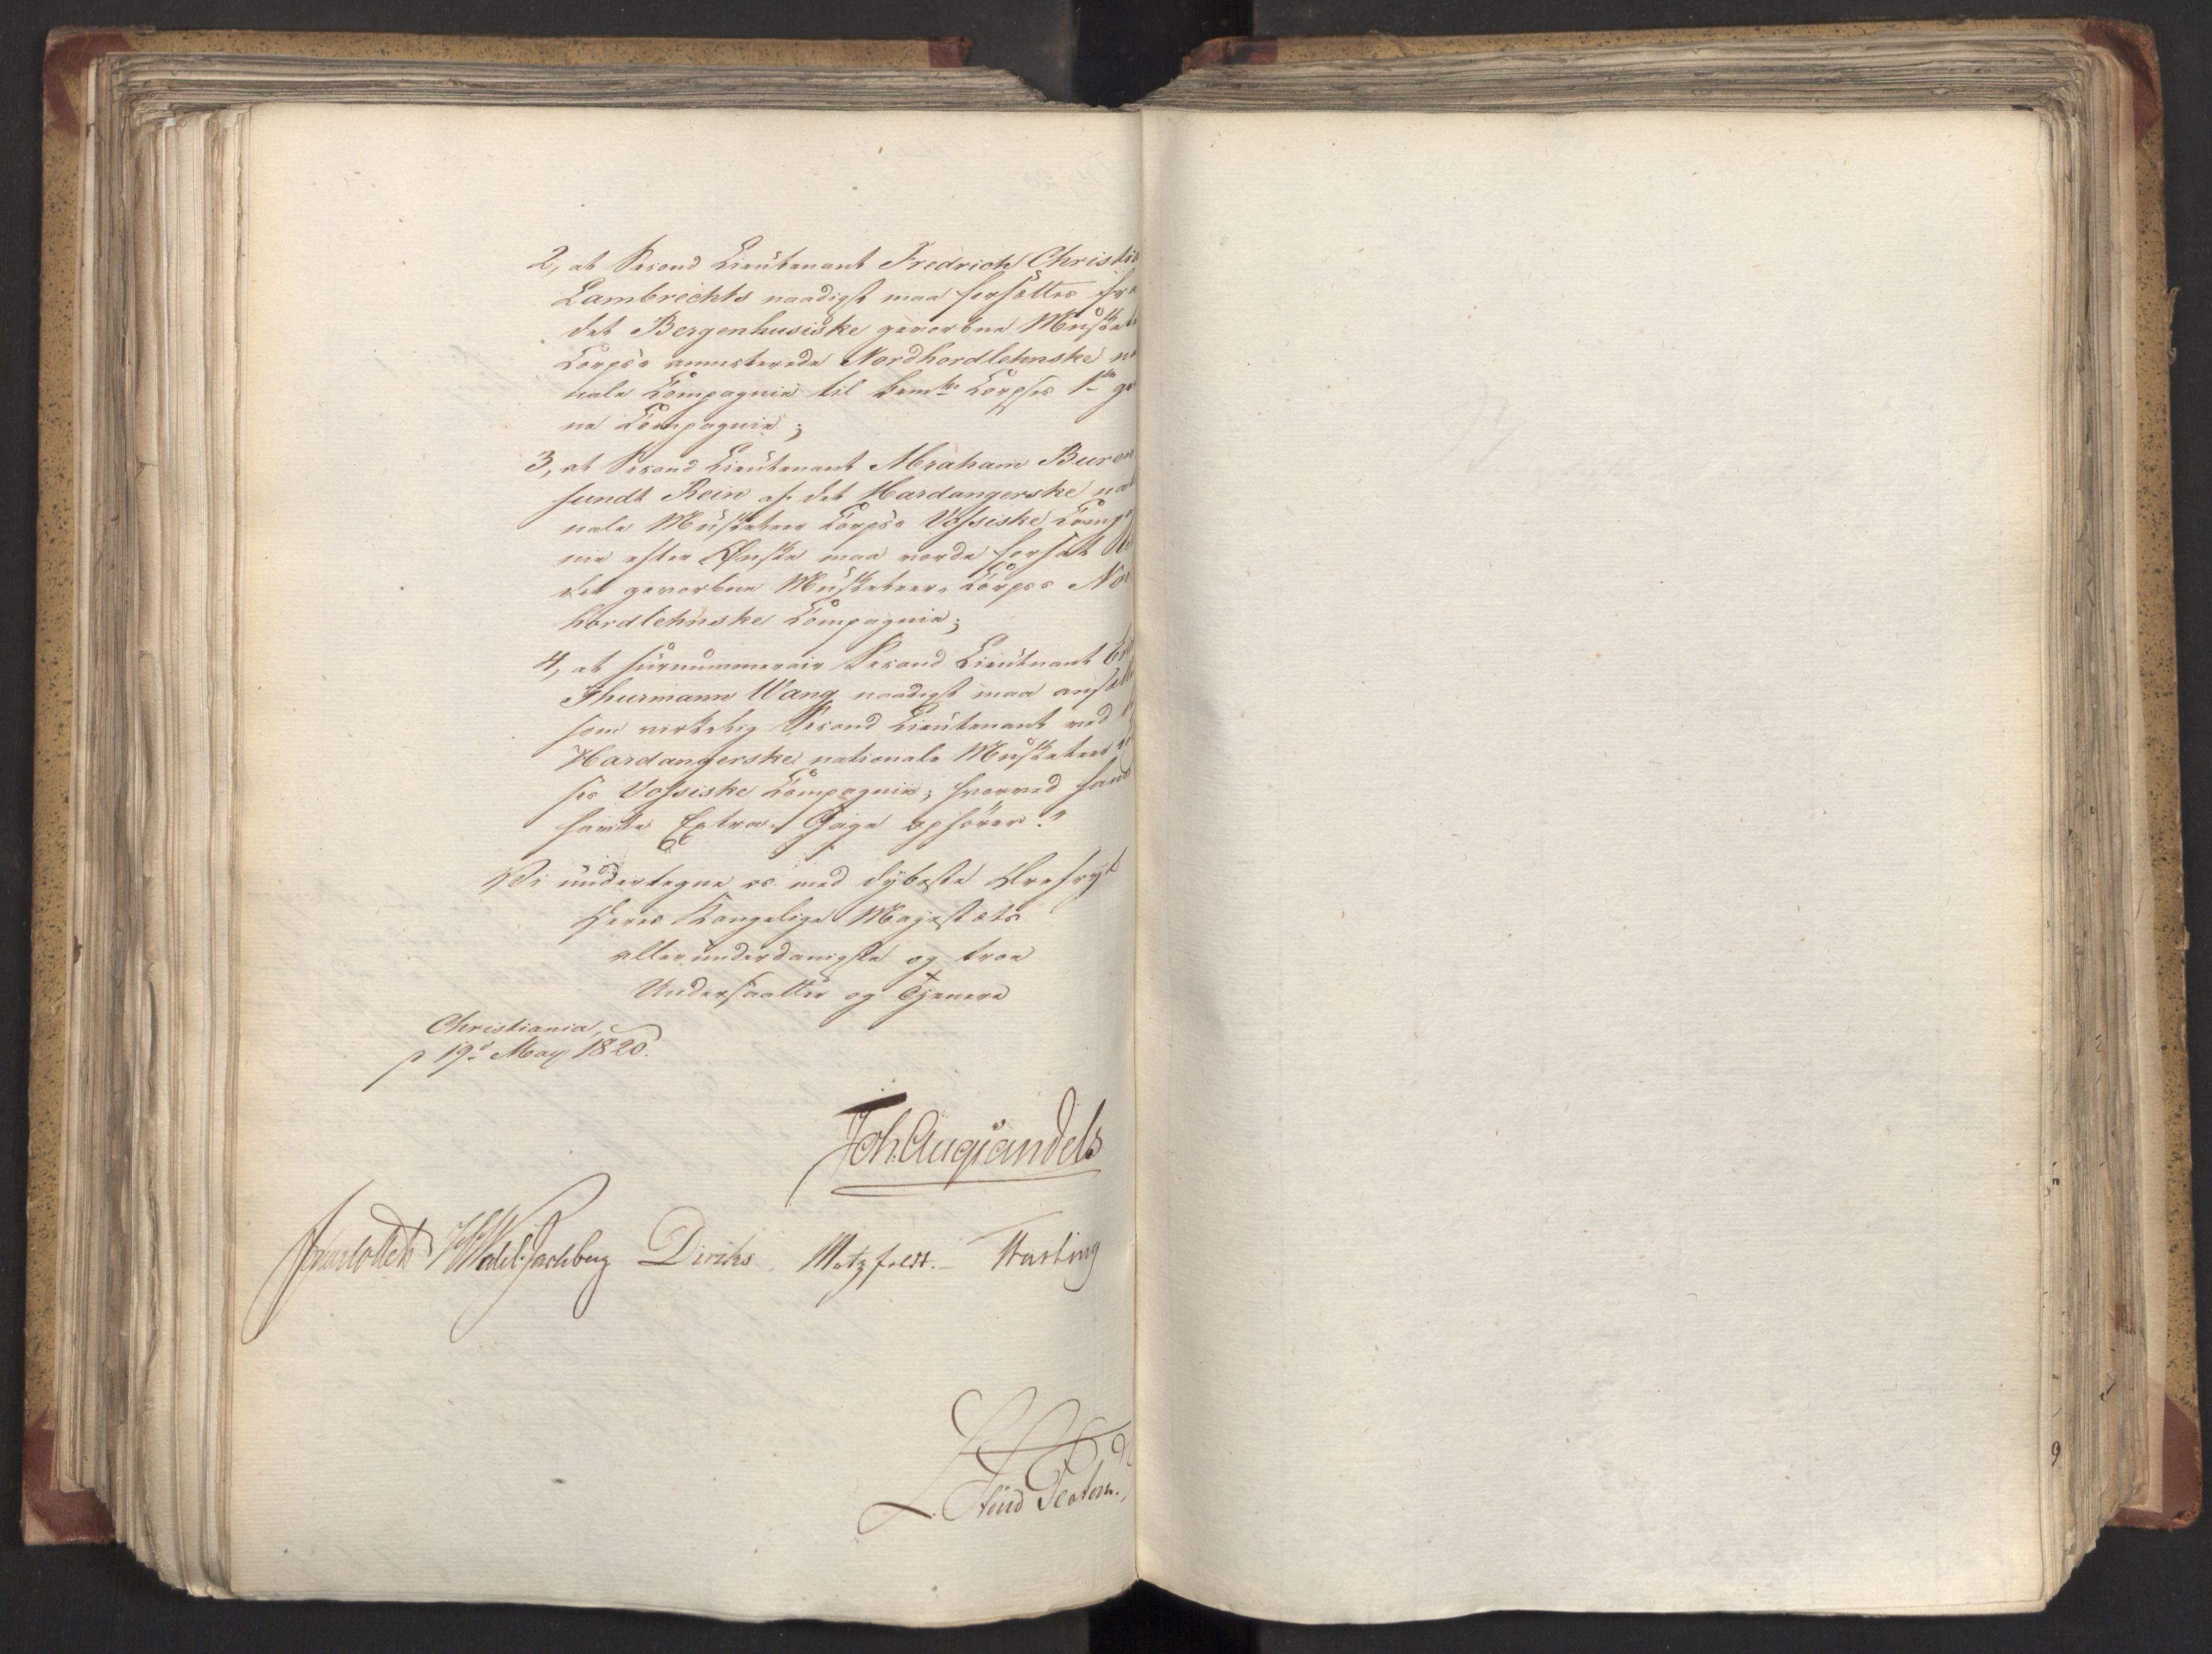 2, at Second Lieutenant Fredrich Christia
Lambrechts naadigst maa forsættes fra
det Bergenhusiske gevorbne Musket
Corps's annecterede Nordhordlehnske na
nale Compagnie til bem.te Corpses 1ste ge
ne Compagnie;
3, at Second Lieutenant Abraham Buren
sundt Rein af det Hardangerske nat
nale Musketeer Corps's Vossiske Comp
nie efter Ønske maa vorde forsat til
det gevorbne Musketeer-Corpss Nor
hordlehnske Compagnie;
4, at surnummerair Second Lieutenant
Thurmann Wang naadigst maa ansætte
som virkelig Second Lieutenant ved
Hardangerske nationale Musketeer
ses Vossiske Compagnie; hvorved hans
havte Extra-Gage ophører."
Vi undertegne os med dybeste Ærefrygt
Deres Kongelige Majestæts
allerunderdanigste og troe
Undersaatter og Tjenere
Christiania,
p 19d May 1820.
Joh. Aug Sandels
Diriks. Motzfeldt. Fasting